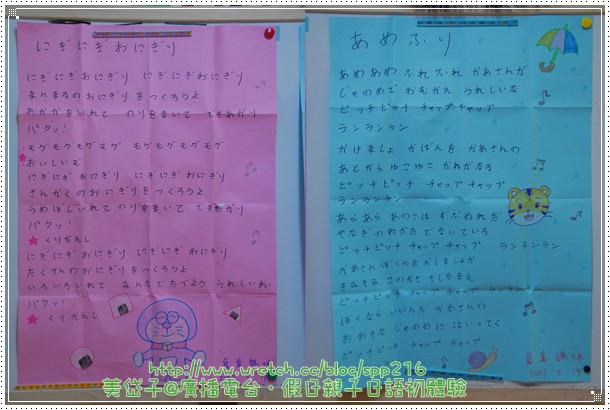 にぎにぎおにぎり
にぎにぎおにぎり にぎにぎおにぎり
まんまるのおにぎりをつくろうよ
おかかをいれて のりをまいて できあがり
パクッ!
モグモグモグモグ モグモグモグモグ
おいしいぞ
にぎにぎおにぎり にぎにぎおにぎり
さんかくのおにぎりをつくろうよ
うめぼしいれて のりをまいて できあがり
パクッ!
★くりかえし
にぎにぎおにぎり にぎにぎおにぎり
たくさんのおにぎりをつくろうよ
いろいろいれて みんなでたべよう うれしいね
パクッ!
★くりかえし
あめふり
あめあめ ふれふれ かあさんが
じゃのめで おむかえ うれしいな
ピッチピッチ チャップチャップ
ランランラン
かけましょ かばんを かあさんの
あとから ゆこゆこ かねがなる
ピッチピッチ チャップチャップ
ランランラン
あらあら あのこは ずぶぬれだ
やなぎの ねかたで ないている
ピッチピッチ チャップチャップ ランランラン
かあさん ぼくのを かしましょか
きみきみ このかさ さしたまえ
ピッチピッチ チャップチャップ ランランラン
ぼくなら いいんだ かあさんの
おおきな じゃのめに はいってく
ピッチピッチ チャップチャップ
ランランラン
2007
http://www.wretch.cc/blog/spp216
美岱子@廣播電台・假日親子日語初體驗